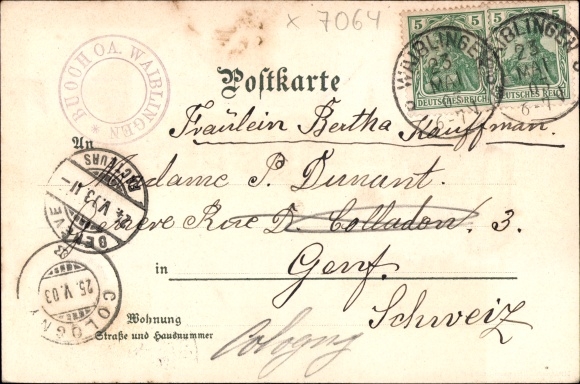 x 7064
5 5 5
DEUTSCHES REICH DEUTSCHES REICH
WAIBLINGEN
23
MAI
6-7
WAIBLINGEN
23
MAI
6-7
* BUOCH OA. WAIBLINGEN
Postkarte
Fräulein Bertha Kauffmann.
An
Madame P. Dunant.
Rue D. Colladon. 3.
in Genf.
Schweiz
GENÈVE
24.V.03
FACTEURS
COLOGNY
25.V.03
Wohnung
Straße und Hausnummer
Cologny